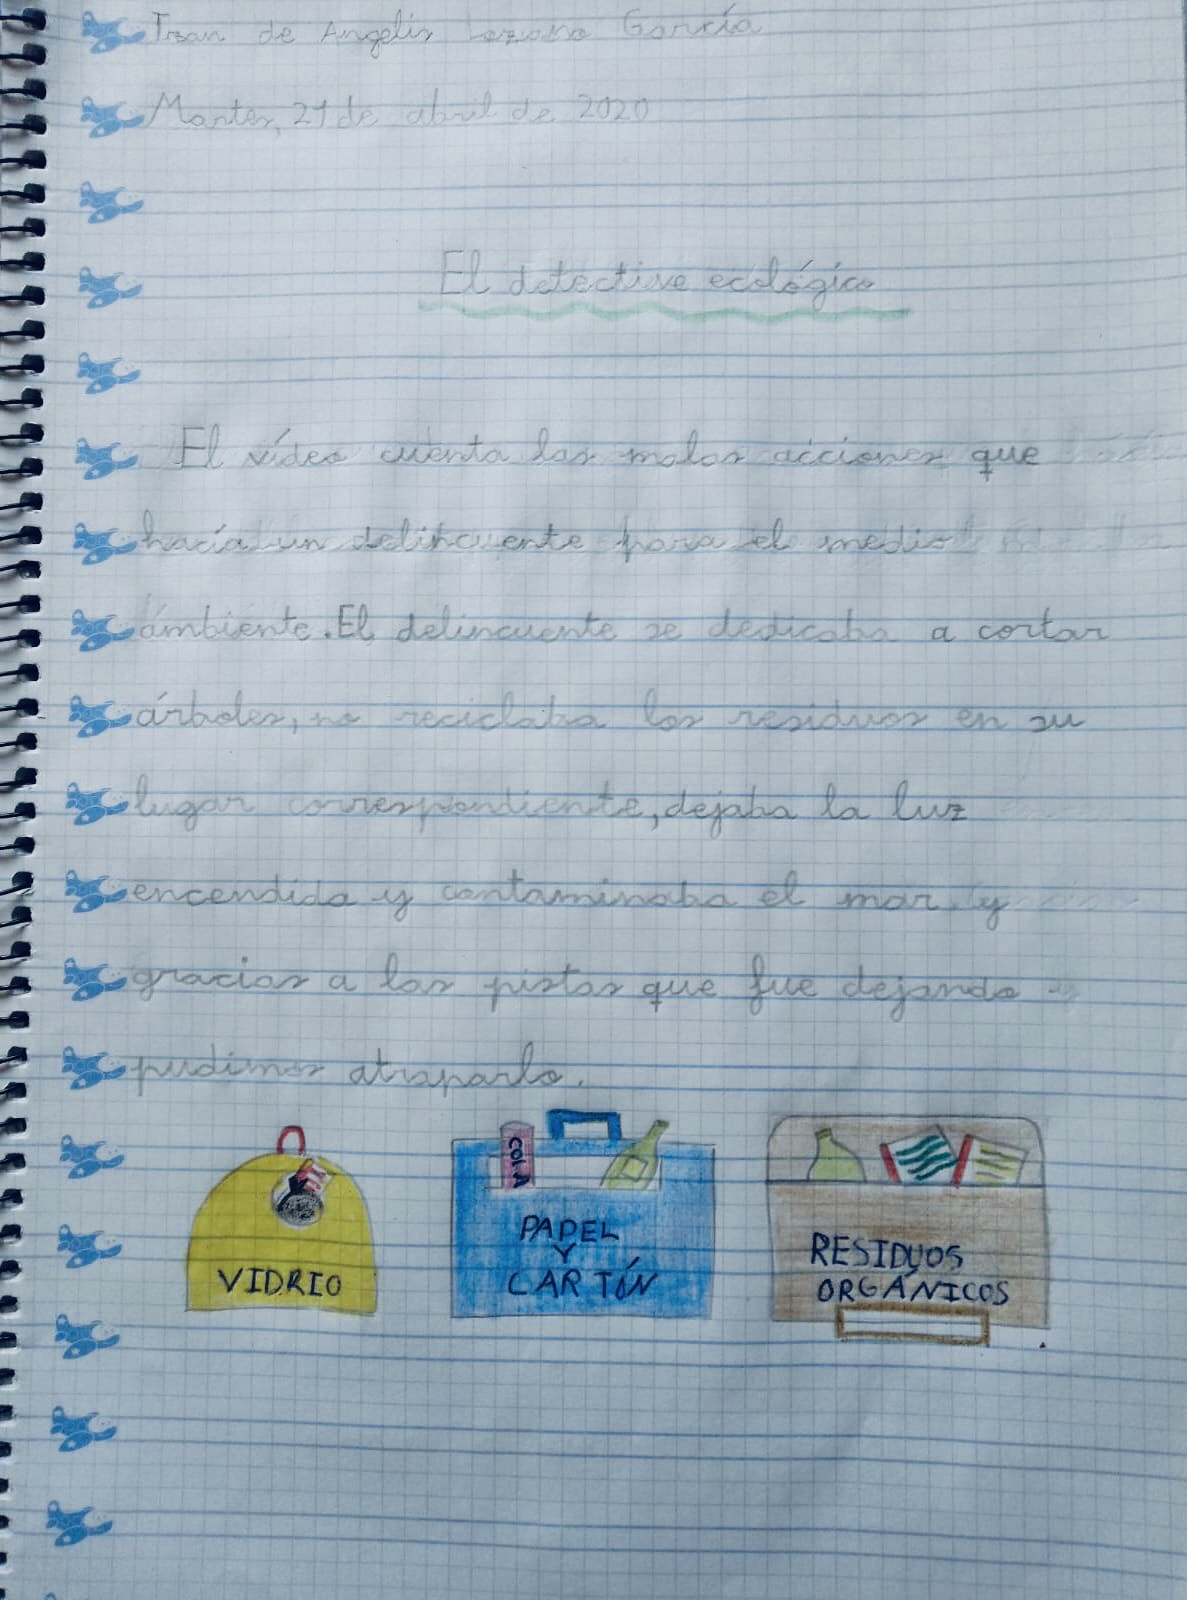 Izan de Angelis Lozano García
Martes, 21 de abril de 2020
El detective ecológico
El vídeo cuenta las malas acciones que
hacía un delincuente para el medio
ambiente. El delincuente se dedicaba a cortar
árboles, no reciclaba los residuos en su
lugar correspondiente, dejaba la luz
encendida y contaminaba el mar y
gracias a las pistas que fue dejando
pudimos atraparlo.
COLA
VIDRIO
PAPEL
Y
CARTÓN
RESIDUOS
ORGÁNICOS